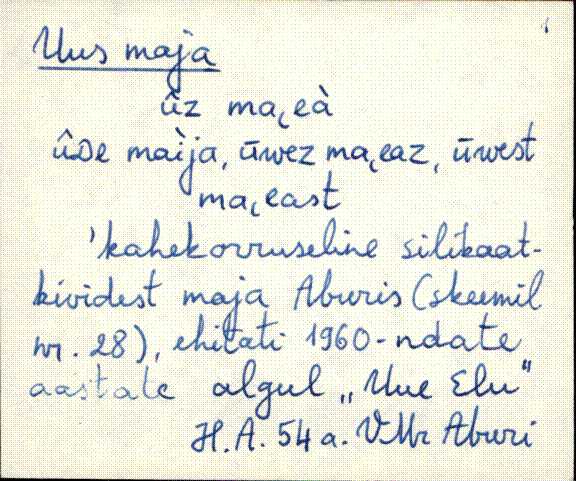 Uus maja
ûz ma͔eà
ûᴅe maìja, ūwez ma͔eaz, ūwest
ma͔east
'kahekorruseline silikaat-
kividest maja Aburis (skeemil
nr. 28), ehitati 1960-ndate
aastate algul „Uue Elu"
H.A. 54 a. VMr Aburi